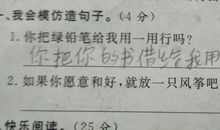 、我会模仿造句子。(4 分)
1. 你把绿铅笔给我用一用行吗?
你把你的书借给我用
2. 如果你愿意和好,就放一只风筝吧
快乐阅读。(25 分)